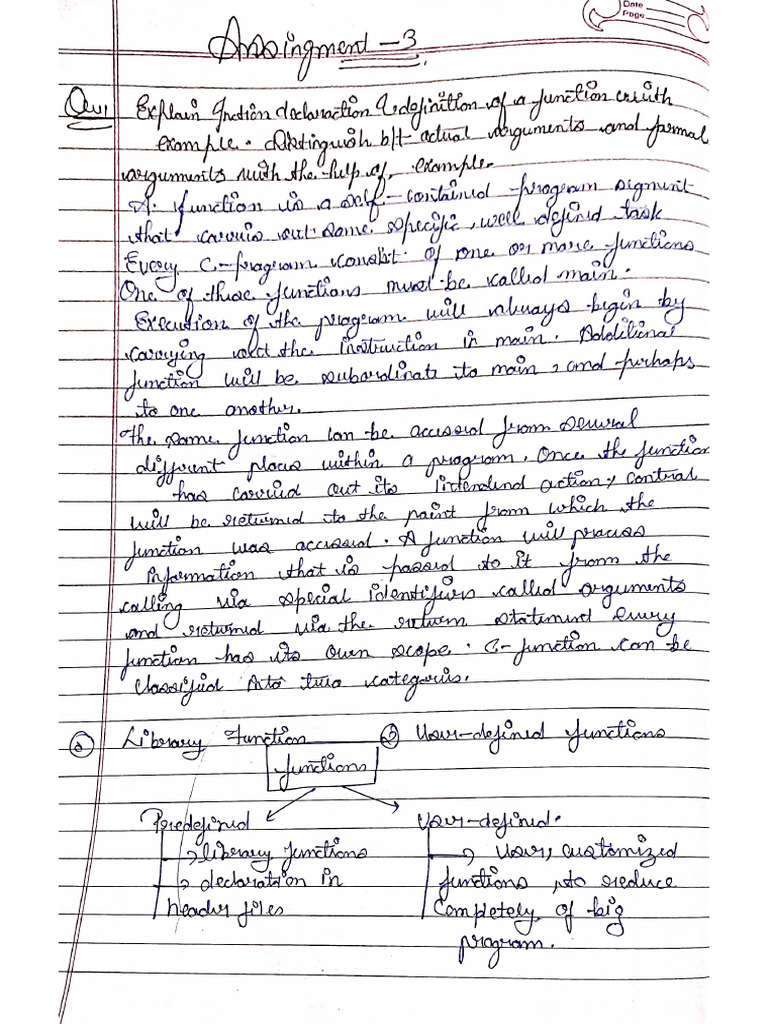 Date
Page
Assingment - 3
Que1 Explain function declaraction & definition of a function with
example. Distinguish b/t actual arguments and formal
arguments with the help of, example.
A. function is a self-contained program sigment
that carries out some specific, well defined task
Every C-program consist of one or more functions
One of those functions must be called main.
Execution of the program will always begin by
carrying out the instruction in main. Additional
function will be subordinate to main, and perhaps
to one another.
The same function can be accessed from several
different places within a program. Once the function
has carried out its intended action, control
will be returned to the point from which the
function was accessed. A function will process
information that is passed to it from the
calling via special identifiers called arguments
and returned via the return statement every
function has its own scope. C-function can be
classified into two categories.
ⓐ Library Function ⓑ User-defined functions
functions
Predefined User-defined.
→ library functions → User, customized
→ declaration in functions, to reduce
header files completely of big
program.